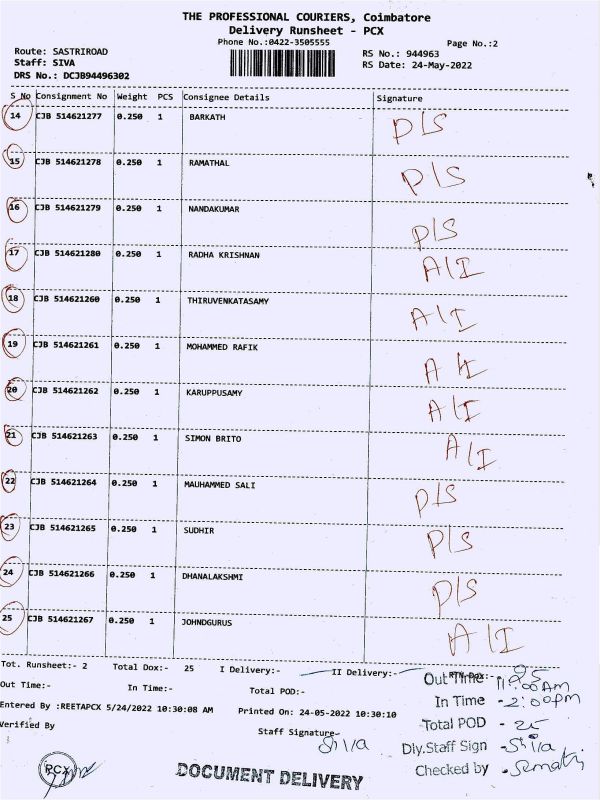 THE PROFESSIONAL COURIERS, Coimbatore
Delivery Runsheet - PCX
Phone No.:0422-3505555
Page No.:2
Route: SASTRIROAD
RS No.: 944963
Staff: SIVA
RS Date: 24-May-2022
DRS No.: DCJB94496302
S No Consignment No Weight PCS Consignee Details Signature
14 CJB 514621277 0.250 1 BARKATH P/S
15 CJB 514621278 0.250 1 RAMATHAL P/S
16 CJB 514621279 0.250 1 NANDAKUMAR P/S
17 CJB 514621280 0.250 1 RADHA KRISHNAN A/I
18 CJB 514621260 0.250 1 THIRUVENKATASAMY A/I
19 CJB 514621261 0.250 1 MOHAMMED RAFIK A/I
20 CJB 514621262 0.250 1 KARUPPUSAMY A/I
21 CJB 514621263 0.250 1 SIMON BRITO A/I
22 CJB 514621264 0.250 1 MAUHAMMED SALI P/S
23 CJB 514621265 0.250 1 SUDHIR P/S
24 CJB 514621266 0.250 1 DHANALAKSHMI P/S
25 CJB 514621267 0.250 1 JOHNDGURUS A/I
Tot. Runsheet:- 2 Total Dox:- 25 I Delivery:- II Delivery:- RTN Dox:-
Out Time:- In Time:- Total POD:-
Out Time - AM
In Time - 2:00pm
Entered By :REETAPCX 5/24/2022 10:30:08 AM Printed On: 24-05-2022 10:30:10
Total POD - 25
Verified By Staff Signature- Silva
Dly.Staff Sign - Silva
Checked by -
PCX
DOCUMENT DELIVERY